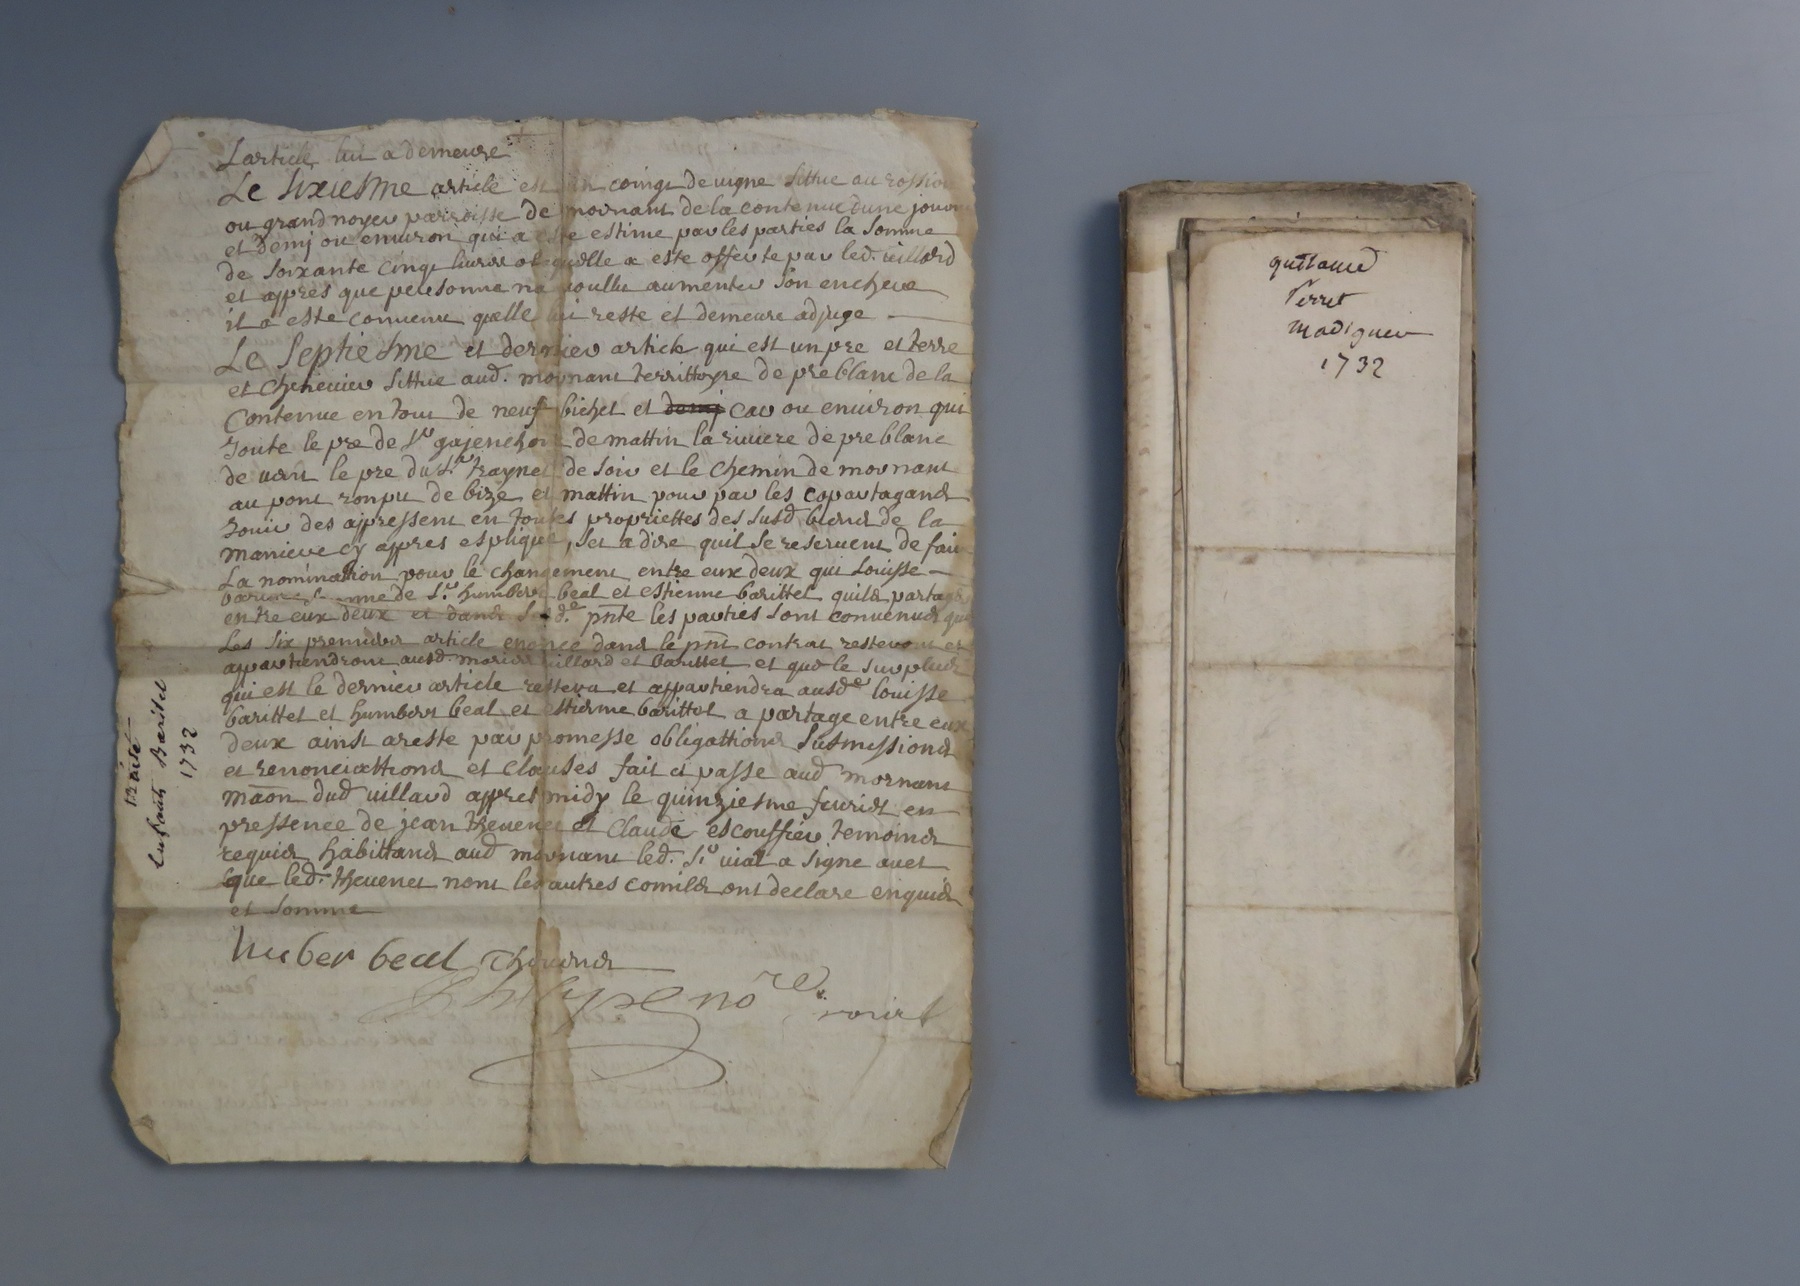 Larticle lui a demeure
Le sixiesme article est un coingt de vigne sittue au rossion
ou grand noyer parroisse de mornant de la contenue dune journe
et demj ou environ qui a este estime par les parties la somme
de soixante cinqt livres a laquelle a este offerte par led. villard
et appres que personne na voullu aumenter son enchere
il a este convenu quelle lui reste et demeure adjuge
Le septiesme et dernier article qui est un pre et terre
et chenevier sittue aud. mornant territtoyre de preblanc de la
Contenue en tout de neuf bichet et demj car ou environ qui
Joute le pre de Sr gajenchon de mattin la riviere de preblanc
de vant le pre du Sr traynet de soir et le chemin de mornant
au pont ronpu de bize et mattin pour par les copartagans
Jouir des appressent en toutes propriettes des susd biens de la
maniere cy appres esplique, set a dire quil se reservent de faire
La nomination pour le changement entre eux deux qui Louisse
barittel femme de Sr humbert beal et estienne barittel quils partage
entre eux deux et dans Susd.e pnte les parties sont convenues que
Les six premiers article enonce dans le pnt contrat resteront et
appartiendront ausd. maries villard et barittel et que le surplus
qui est le dernier article restera et appartiendra ausde louisse
barittel et humbert beal et estienne barittel a partage entre eux
deux ainsi areste par promesse obligattions susmissions
et renonciattions et Clauses fait et passe aud mornant
maon dud villard appres midy le quinziesme fevrier en
pressence de jean thevenet et Claude escouffier temoins
requis habittans aud mornant led. Sr vial a signe avet
que led. thevenet nont les autres comils ont declare enquis
et somme
huber beal Thevenet
phelype nore
Traité
Enfants Baritel
1732
guillaume
Perret
madignier
1732